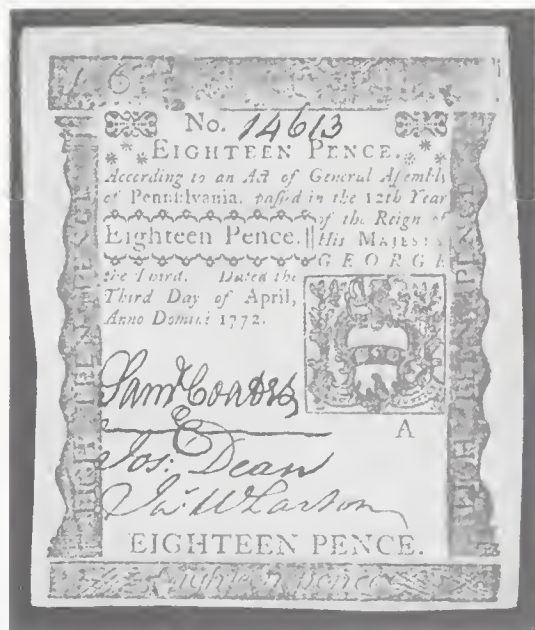 No. 14613
EIGHTEEN PENCE.
According to an Act of General Assembly
of Pennsylvania, passed in the 12th Year
of the Reign of
Eighteen Pence. His MAJESTY
GEORGE
the Third. Dated the
Third Day of April,
Anno Domini 1772.
Saml Coates
A
&
Jos: Dean
Jas. Wharton
EIGHTEEN PENCE.
Eighteen Pence